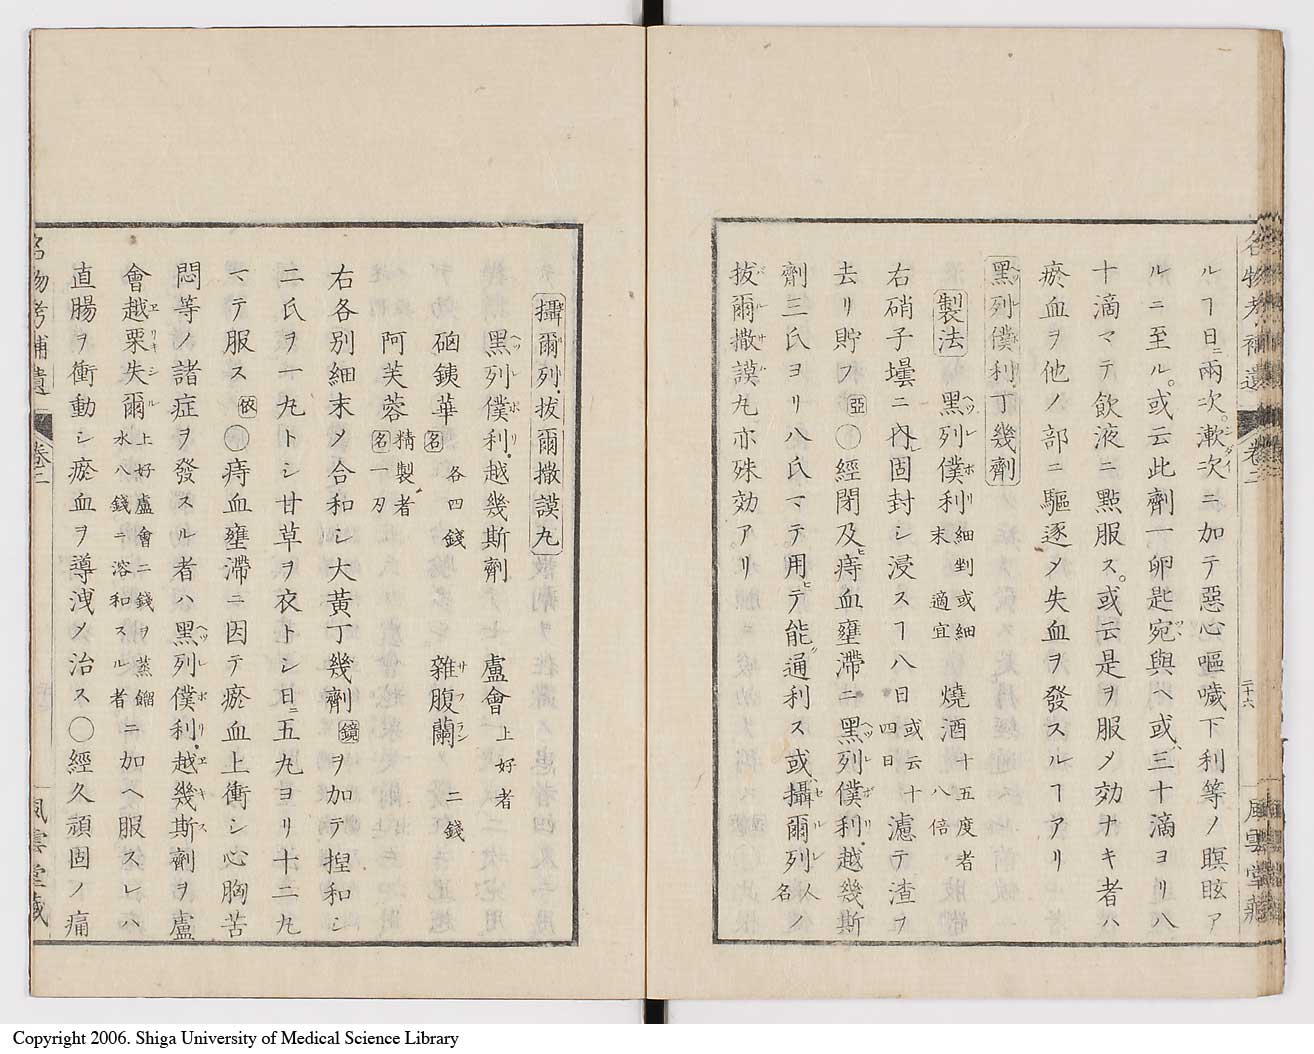 名物考補遺 卷二 二十六 風雲堂藏
ルヿ日ニ兩次。漱次ニ加テ惡心嘔噦下利等ノ瞑眩ア
ルニ至ル。或云此劑一卵匙宛與ヘ或ハ三十滴ヨリ八
十滴マテ飲液ニ點服ス。或云是ヲ服メ効ナキ者ハ
瘀血ヲ他ノ部ニ驅逐メ失血ヲ發スルヿアリ
黑列僕利丁幾劑
製法 黑列僕利 細剉或細末 適宜 燒酒 十五度者八倍
右硝子壜ニ内レ固封シ浸スヿ八日 或云十四日 濾テ渣ヲ
去リ貯フ 亞 〇經閉及ヒ痔血壅滯ニ黑列僕利越幾斯
劑三氏ヨリ八氏マテ用ヒテ能ク通利ス或ハ攝爾列 人名 ノ
拔爾撒謨丸亦殊効アリ
攝爾列拔爾撒謨丸
黑列僕利越幾斯劑 盧會 上好者
硇銕華 名 各四錢 雜腹蘭 二錢
阿芙蓉 精製者 名 一刄
右各別細末メ合和シ大黃丁幾劑 鏡 ヲ加テ揑和シ
二氏ヲ一丸トシ甘草ヲ衣トシ日ニ五丸ヨリ十二丸
マテ服ス 㪉 〇痔血壅滯ニ因テ瘀血上衝シ心胸苦
悶等ノ諸症ヲ發スル者ハ黑列僕利越幾斯劑ヲ盧
會越栗失爾 上好盧會二錢ヲ蒸餾水八錢ニ溶和スル者 ニ加ヘ服スレハ
直腸ヲ衝動シ瘀血ヲ導洩メ治ス〇經久頑固ノ痛
名物考補遺 卷二 風雲堂藏
Copyright 2006. Shiga University of Medical Science Library